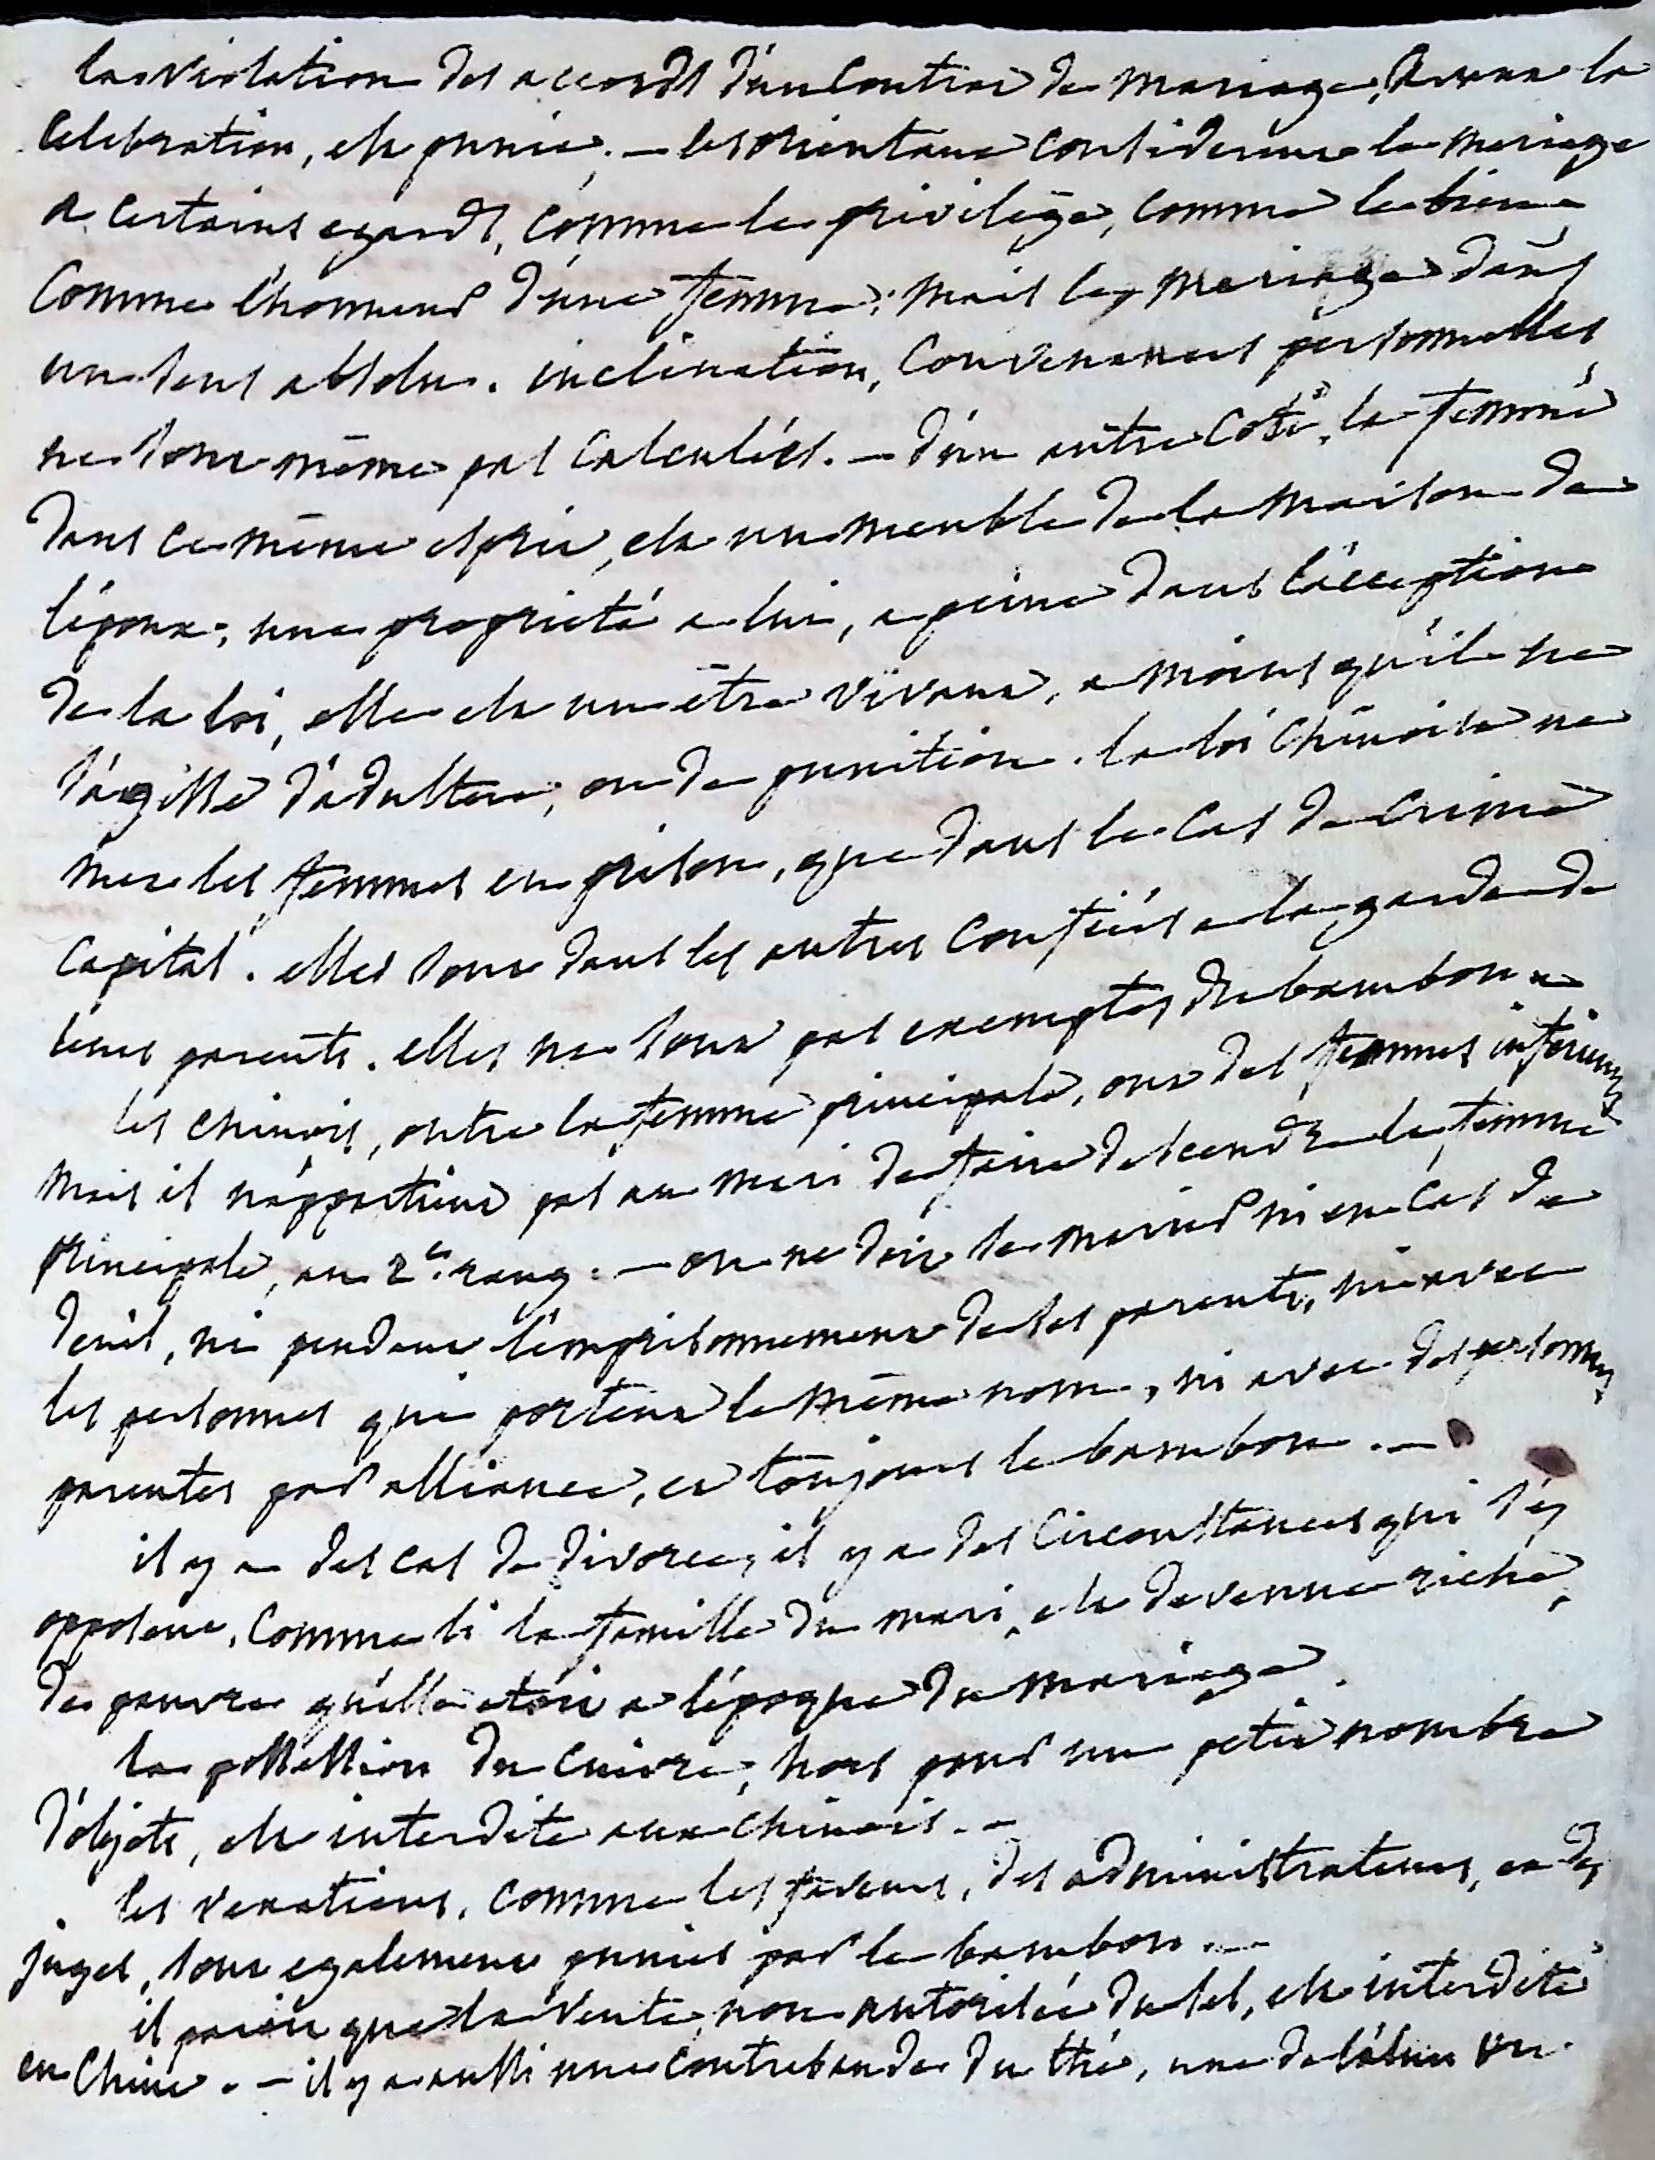 la violation des accords d'un contrat de mariage, avant la
celebration, est punie. — les orientaux considerent le mariage
a certains egards, comme le privilége, comme le bien
comme l'honneur d'une femme; mais le mariage dans
un sens absolu. inclination, convenances personnelles,
ne sont même pas calculées. — d'un autre coté, la femme
dans ce même esprit, est un meuble de la maison de
l'époux; une proprieté a lui, a peine dans l'acception
de la loi, elle est un être vivant, a moins qu'il ne
s'agisse d'adultere, ou de punition. la loi chinoise ne
met les femmes en prison, que dans le cas de crime
capital. elles sont dans les autres confiées a la garde de
leurs parents. elles ne sont pas exemptes du bambou. —
les chinois, outre la femme principale, ont des femmes inferieures
mais il n'appartient pas au mari de faire descendre la femme
principale, au 2e. rang. — on ne doit se marier ni en cas de
deuil, ni pendant l'emprisonnement de ses parents, ni avec
les personnes qui portent le même nom, ni avec des personnes
parentes par alliance, et toujours le bambou. —
il y a des cas de divorce, il y a des circonstances qui s'y
opposent, comme si la famille du mari, est devenue riche,
de pauvre qu'elle etoit a l'époque du mariage.
la possession du cuivre, hors pour un petit nombre
d'objets, est interdite aux chinois. —
les vexations, comme les faveurs, des administrateurs, et des
juges, sont egalement punies par le bambou. —
il paroit que la vente, non autorisée du sel, est interdite
en Chine. — il y a aussi une contrebande du thé, une de l'alun